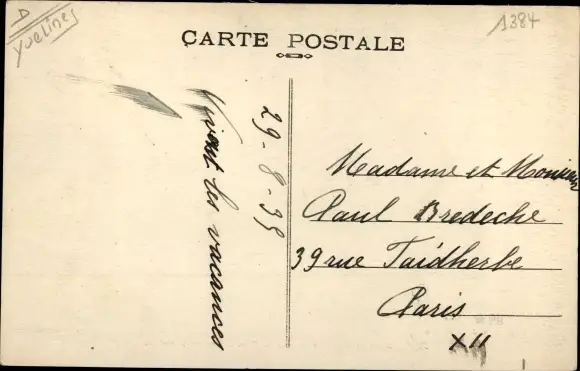 D
Yvelines
1384
CARTE POSTALE
29-8-35
Vivent les vacances
Madame et Monsieur
Paul Bredeche
39 rue Faidherbe
Paris
XII